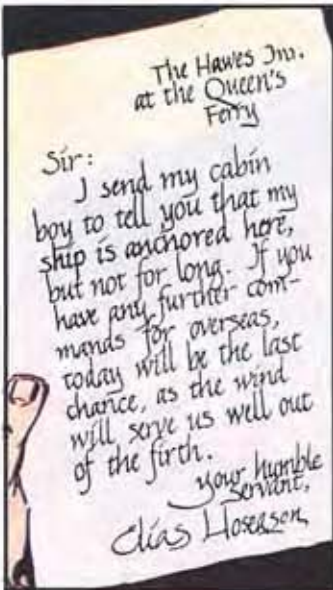 The Hawes Inn.
at the Queen's
Ferry
Sir:
I send my cabin
boy to tell you that my
ship is anchored here,
but not for long. If you
have any further com-
mands for overseas,
today will be the last
chance, as the wind
will serve us well out
of the firth.
your humble
servant,
Elias Hoseason